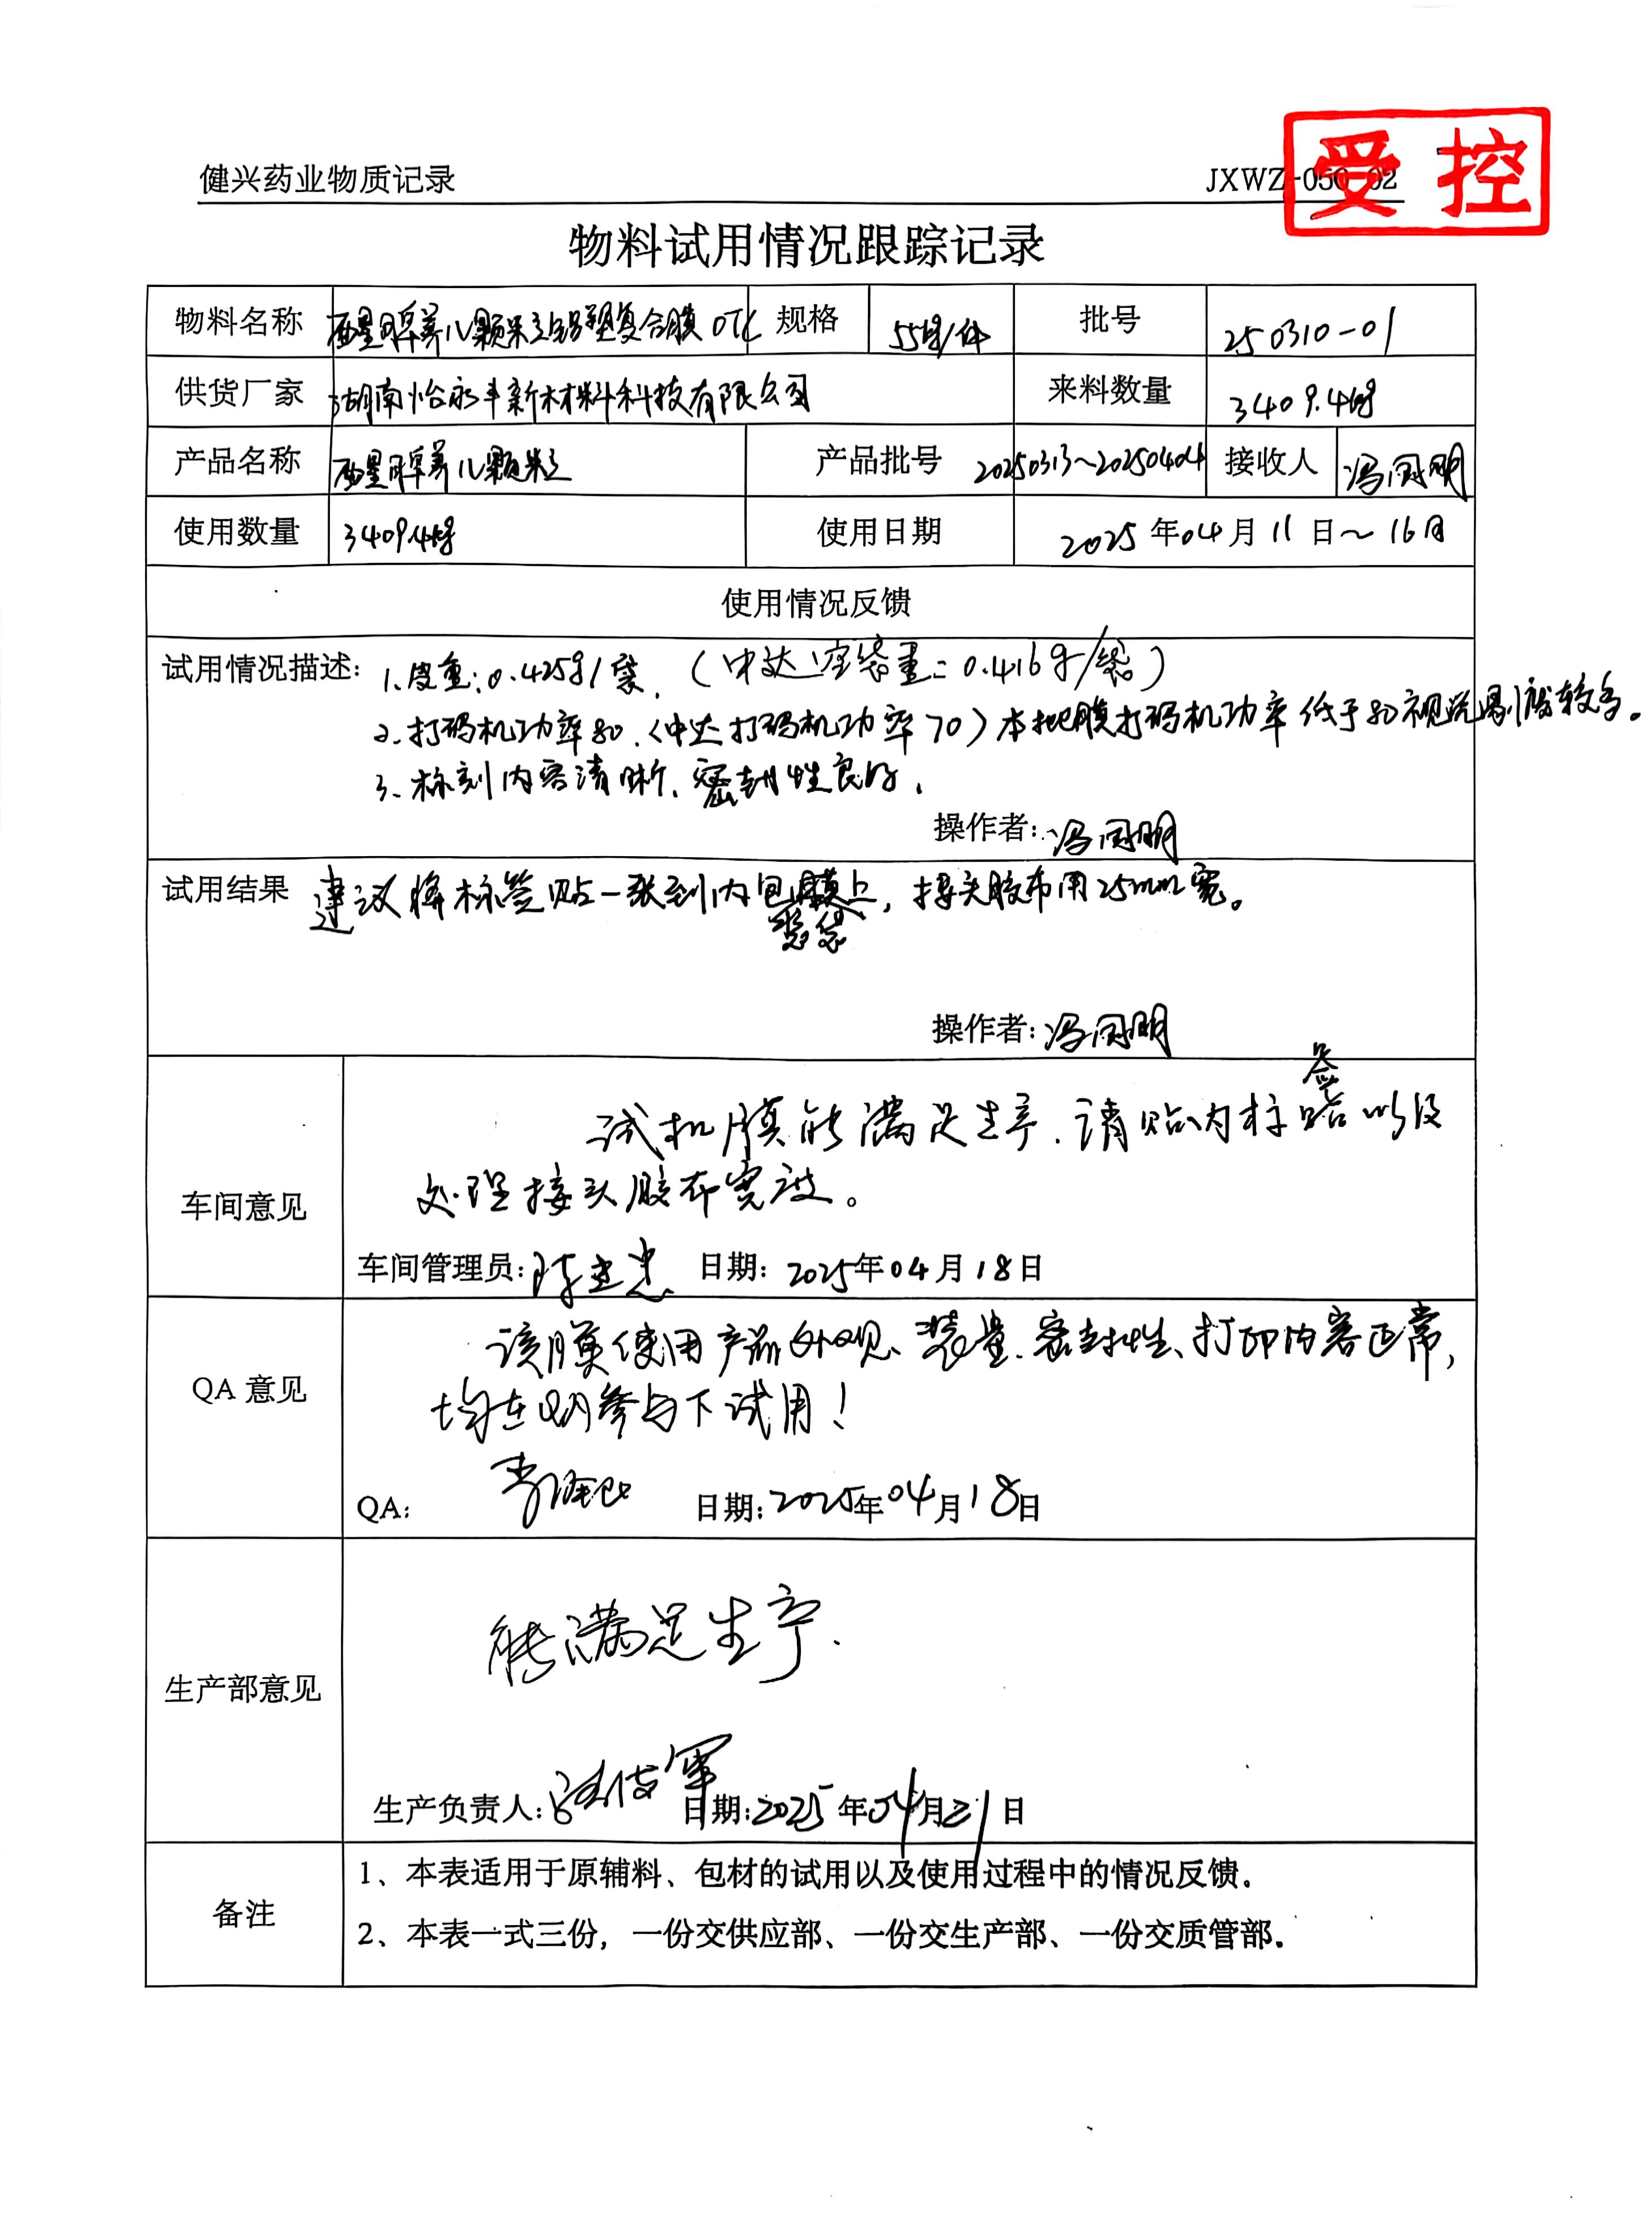 健兴药业物质记录 JXWZ-050-02
受控
物料试用情况跟踪记录
物料名称 醒脾养儿颗粒铝塑复合膜OTC 规格 批号 250310-01
供货厂家 湖南怡永丰新材料科技有限公司 来料数量 3409.4kg
产品名称 醒脾养儿颗粒 产品批号 20250313~20250404 接收人
使用数量 3409.4kg 使用日期 2025年04月11日~16日
使用情况反馈
试用情况描述: 1、皮重:0.425g/袋.(中达空袋重:0.416g/袋)
2、打码机功率80.(中达打码机功率70)本批膜打码机功率低于80视觉 较多。
3、标刻内容清晰、密封性良好.
操作者:
试用结果 建议将标签贴一张到内包膜上,接头胶布用25mm宽。
操作者:
车间意见
试机膜能满足生产.请贴内标签以及
处理接头胶布宽度。
车间管理员: 日期: 2025年04月18日
QA 意见
该膜使用产品外观、装量、密封性、打印内容正常,
均在 参与下试用!
QA: 日期:2025年04月18日
生产部意见
能满足生产.
生产负责人: 日期:2025年04月21日
备注
1、本表适用于原辅料、包材的试用以及使用过程中的情况反馈。
2、本表一式三份,一份交供应部、一份交生产部、一份交质管部。